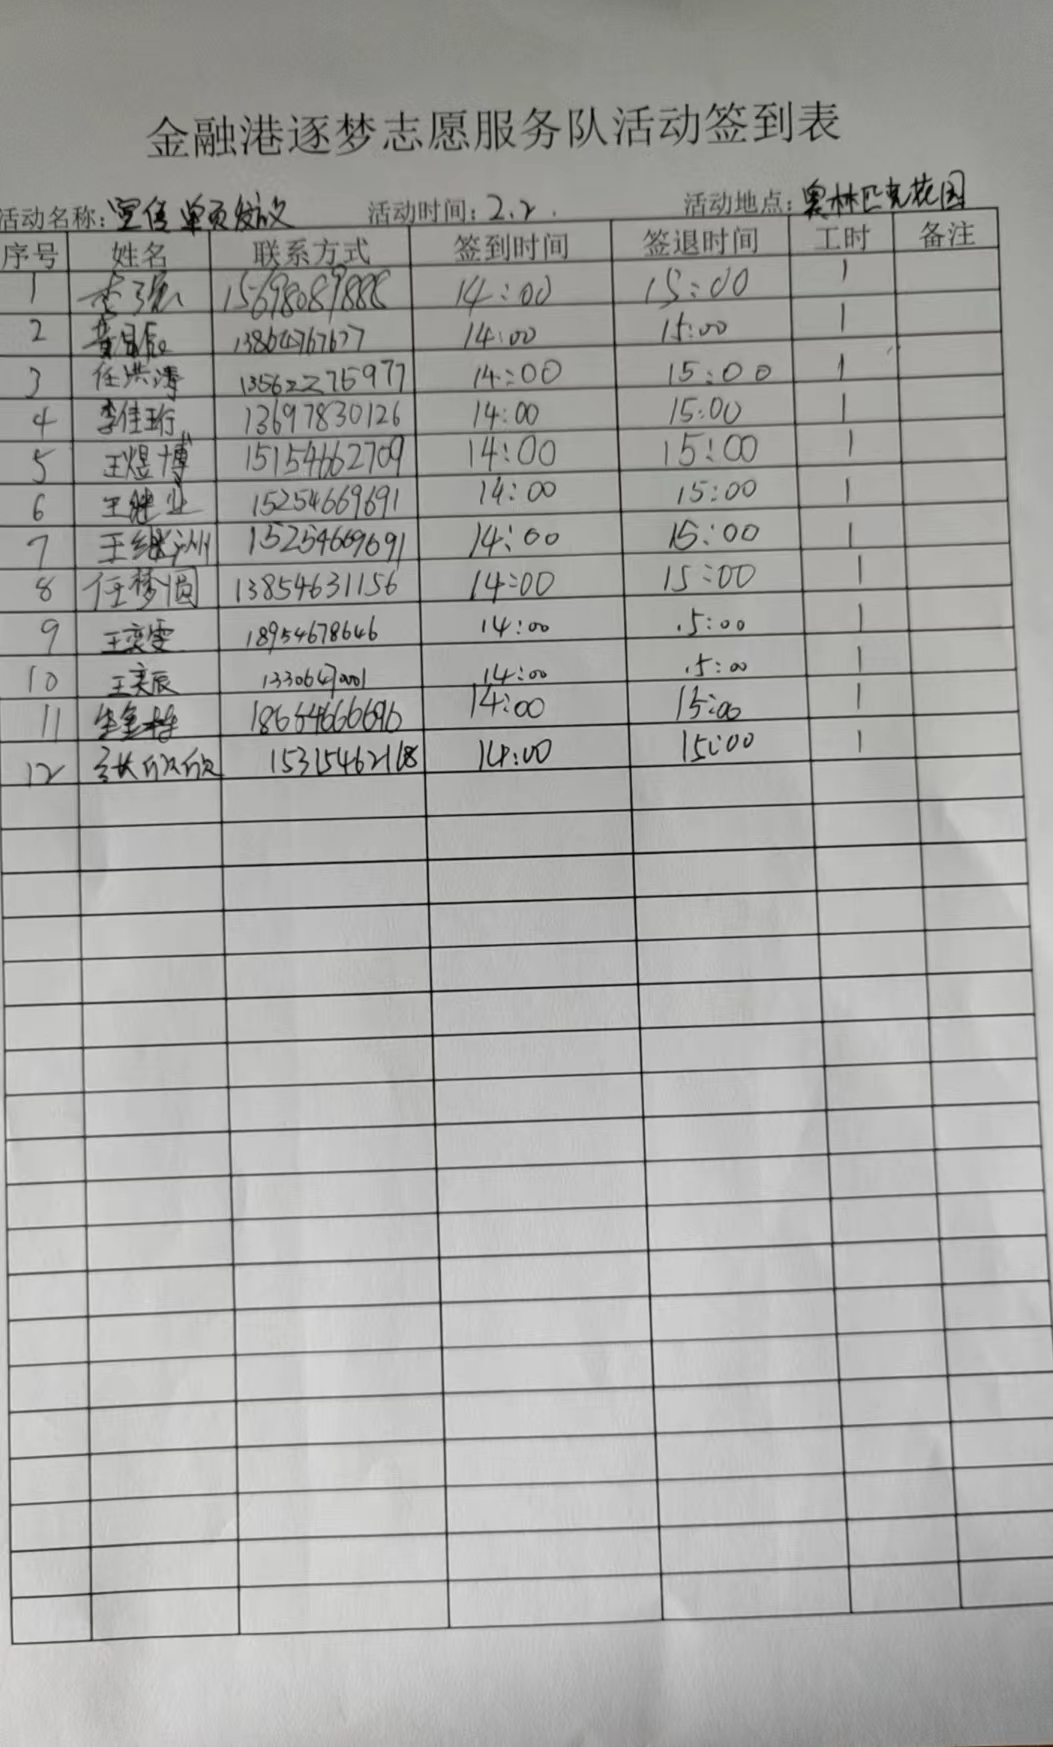 金融港逐梦志愿服务队活动签到表
活动名称：宣传单页发放 活动时间：2.2. 活动地点：奥林匹克花园
序号 姓名 联系方式 签到时间 签退时间 工时 备注
1 李强 15698089888 14:00 15:00 1
2 138 14:00 15:00 1
3 任洪涛 13562276977 14:00 15:00 1
4 李佳珩 13697830126 14:00 15:00 1
5 王煜博 15154662709 14:00 15:00 1
6 王继业 15254669691 14:00 15:00 1
7 王继洲 15254669691 14:00 15:00 1
8 任梦圆 13854631156 14:00 15:00 1
9 王奕雯 18954678646 14:00 15:00 1
10 王奕辰 14:00 15:00 1
11 18664666696 14:00 15:00 1
12 欣欣 15315462168 14:00 15:00 1